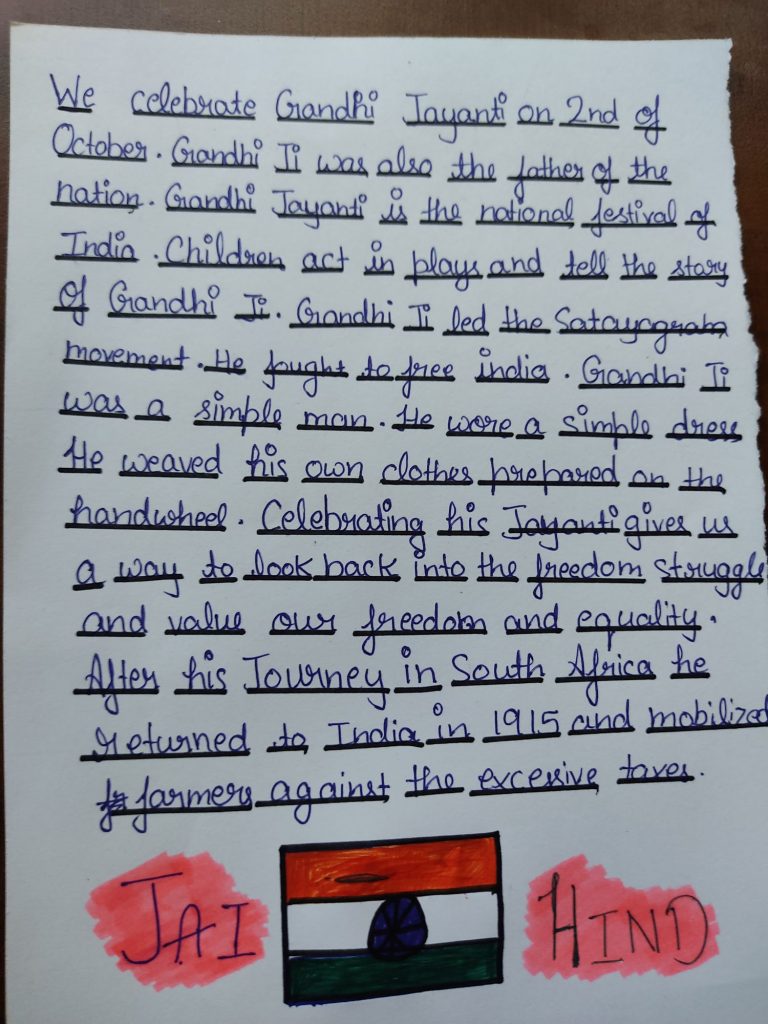 We celebrate Gandhi Jayanti on 2nd of
October. Gandhi Ji was also the father of the
nation. Gandhi Jayanti is the national festival of
India. Children act in plays and tell the story
of Gandhi Ji. Gandhi Ji led the Satayagrah
movement. He fought to free india. Gandhi Ji
was a simple man. He wore a simple dress
He weaved his own clothes prepared on the
handwheel. Celebrating his Jayanti gives us
a way to look back into the freedom struggle
and value our freedom and equality.
After his Journey in South Africa he
returned to India in 1915 and mobilized
farmers against the excessive taxes.
JAI HIND